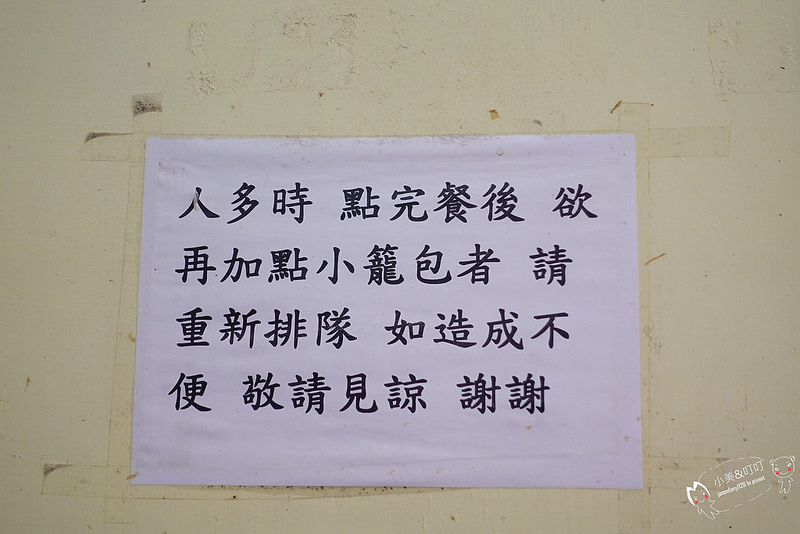 人多時 點完餐後 欲
再加點小籠包者 請
重新排隊 如造成不
便 敬請見諒 謝謝
小美&叮叮